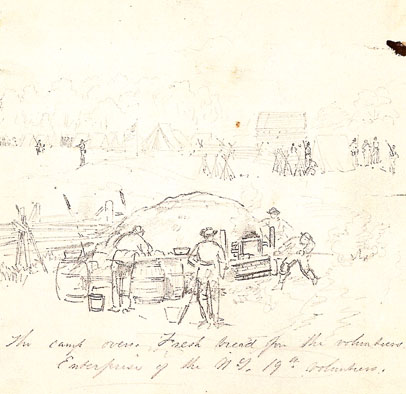 The camp oven. Fresh bread for the volunteers.
Enterprise of the N.Y. 19th volunteers.